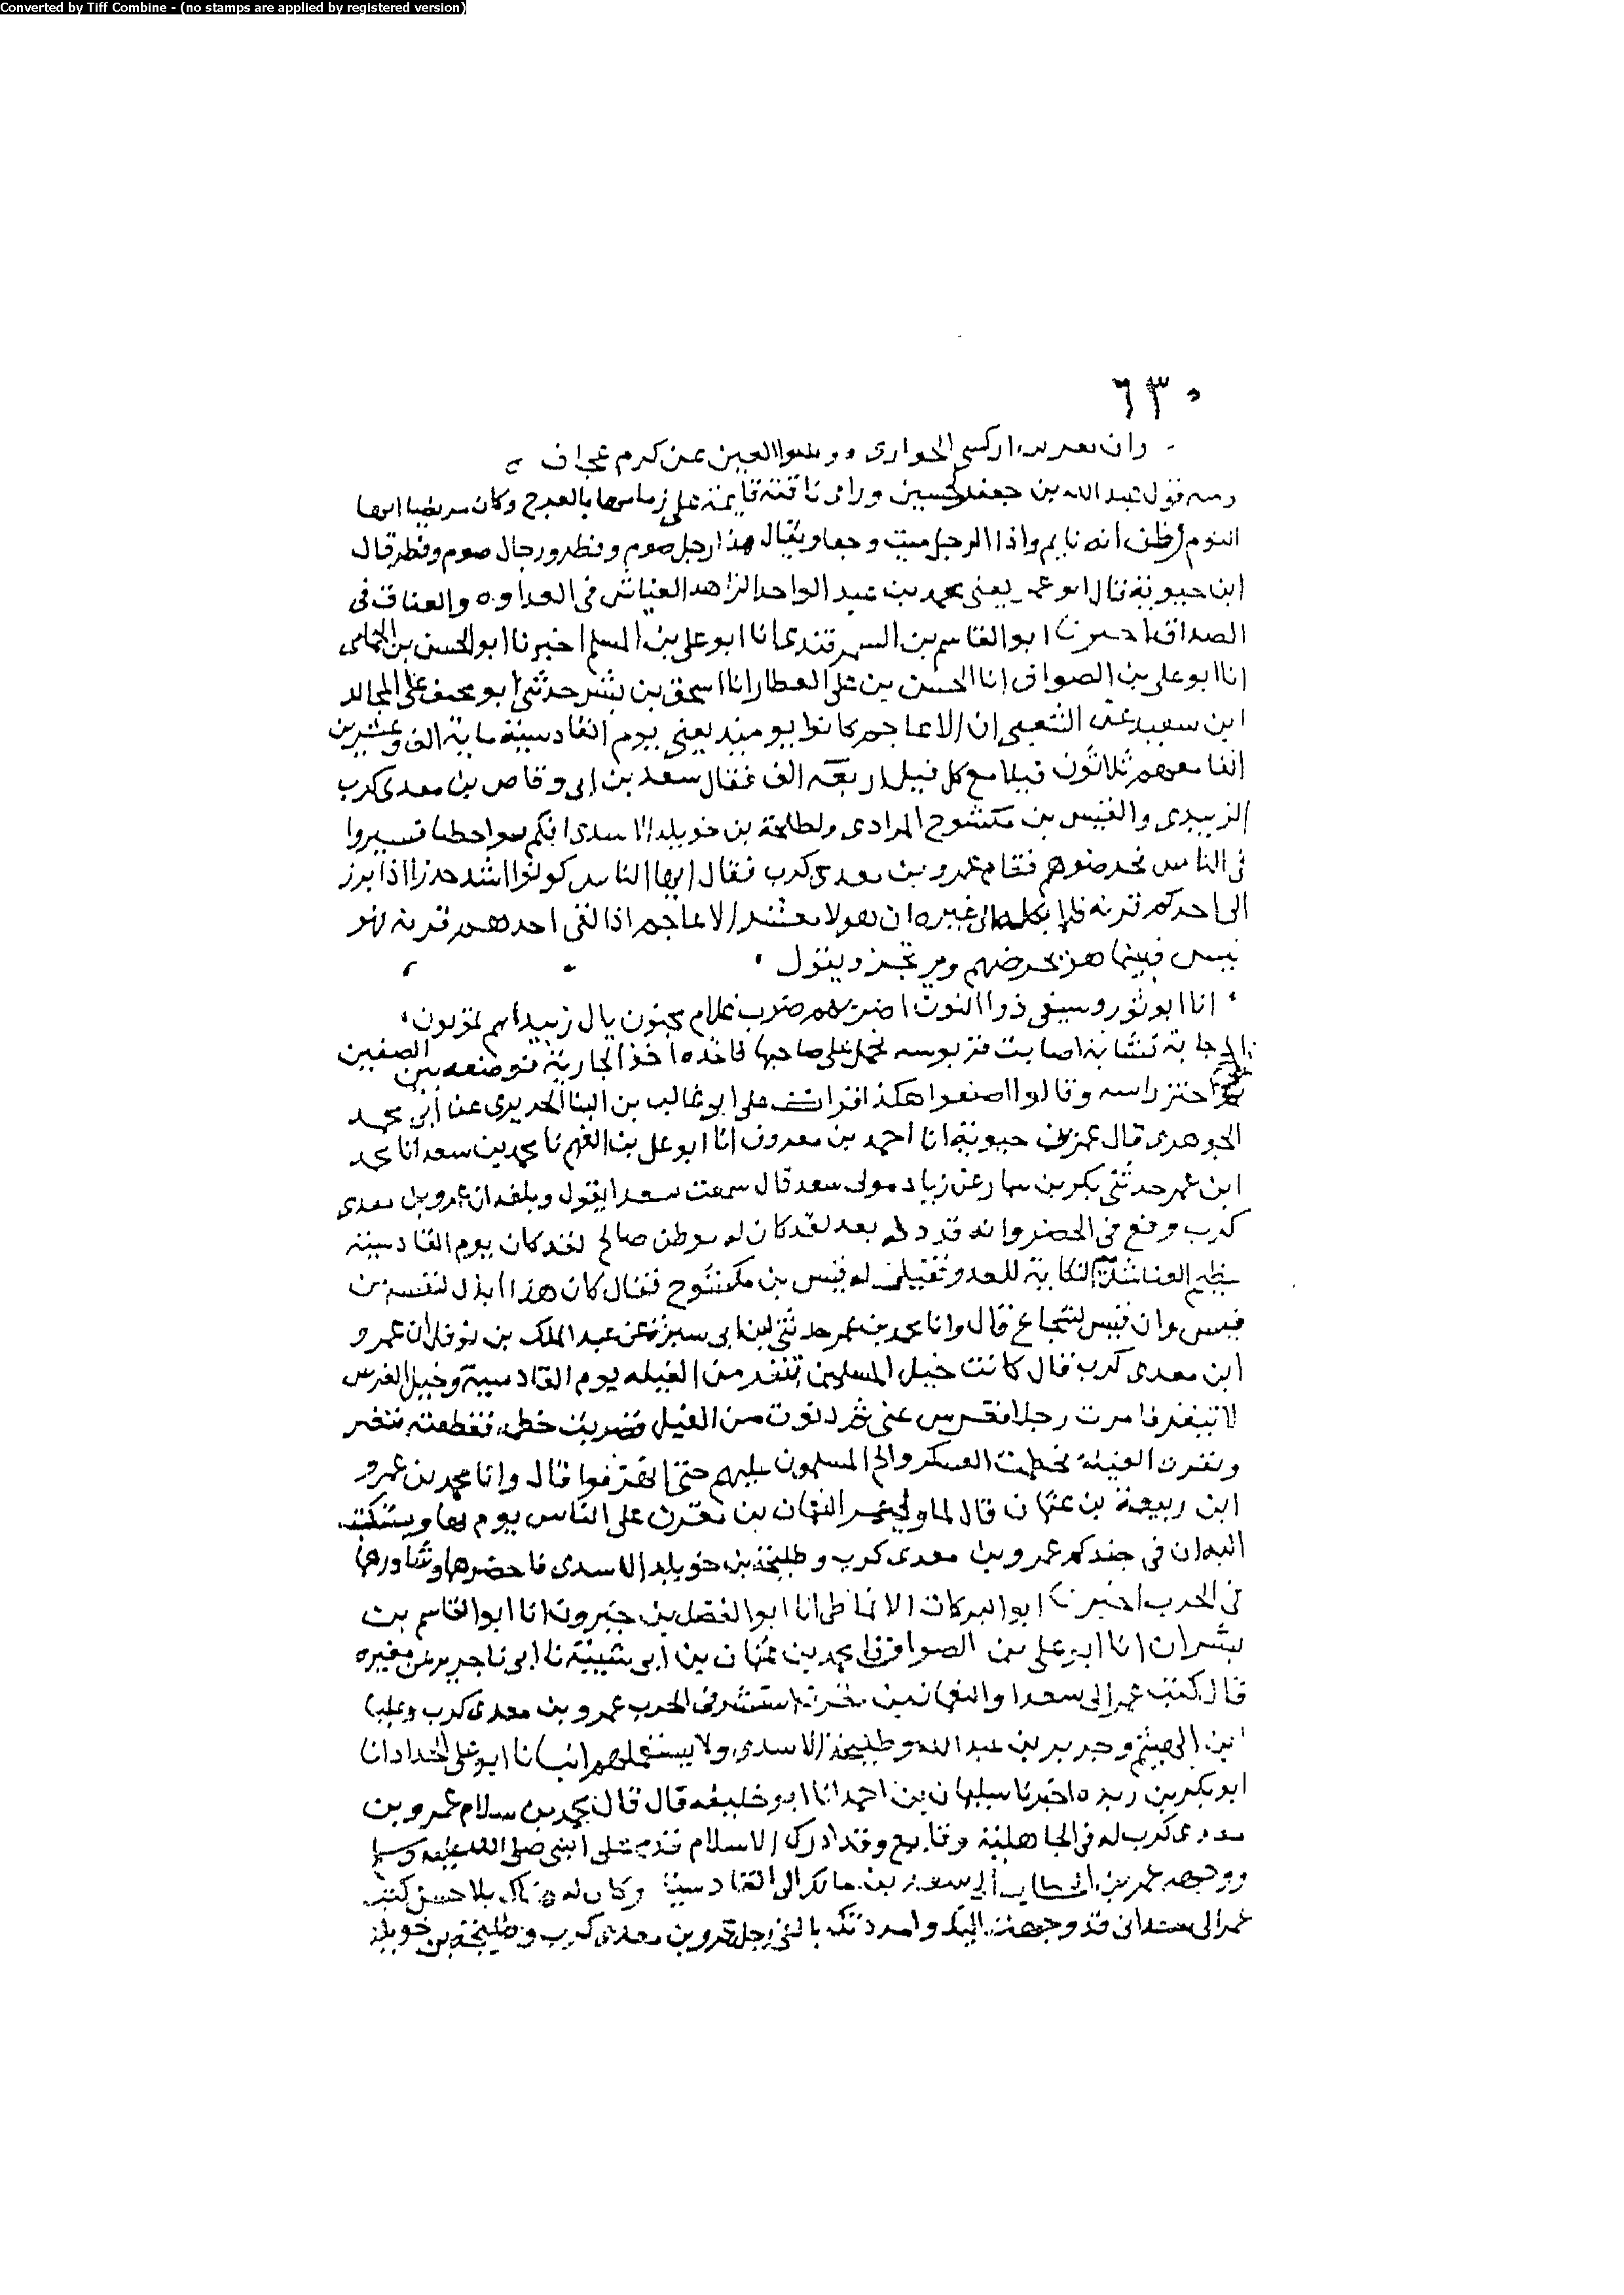 Converted by Tiff Combine - (no stamps are applied by registered version)
٦٣٠
وان يعرين ان كسى الجوارى العين عن كرم عجاف
قول عبد الله بن جعفر للحسين وراى ناقته قايمة على زمامها بالعرج وكان مريضا ايها
النوم اظن انه نايم واذا الرجل ميت وجعا ويقال هذا رجل صوم وفطر ورجال صوم وفطر قال
ابن حيوية قال ابو عمر يعنى محمد بن عبد الواحد الزاهد العياش فى العداوه والعناق فى
الصداقة اخبرنا ابو القاسم بن السمرقندى انا ابو على بن المسلم اخبرنا ابو الحسن بن الحمامى
انا ابو على بن الصواف انا الحسن بن على العطار انا اسحق بن بشر حدثنى ابو مخنف على المجالد
ابن سعيد عن الشعبى ان الاعاجم كانوا يوميذ يعنى يوم القادسية ماية الف وعشرين
الفا معهم ثلاثون فيلا مع كل فيل اربعة الف فقال سعد بن ابى وقاص بن معدى كرب
الزبيدى والقيس بن مكشوح المرادى ولطلحة بن خويلد الاسدى انكم فسيروا
فى الناس فحرضوهم فقام عمرو بن معدى كرب فقال ايها الناس كونوا اشد حذرا اذا برز
الى احدكم قرنه فلا يكله الى غيره ان هولا معشر الاعاجم اذا لقى احدهم قرنه فهو
تيس فبينما هو يحرضهم ويرتجز ويقول
انا ابو ثور وسيفى ذو النون اضربهم ضرب غلام مجنون يال زبيد انهم يموتون
فجاته نشابة اصابت قربوسه فحمل على صاحبها فاخذه اخذ الجارية فوضعه بين الصفين
ثم احتز راسه وقالوا اصنعوا هكذا قرات على ابو غالب بن البنا الحريرى عن ابى محمد
الجوهرى قال عمر بن حيوية انا احمد بن معروف انا ابو على بن الفهم نا محمد بن سعد انا محمد
ابن عمر حدثنى بكر بن مسمار عن زياد مولى سعد قال سمعت سعدا يقول وبلغه ان عمرو بن معدى
كرب وقع فى الخمر وانه قد دله بعد لقد كان له موطن صالح لقد كان يوم القادسية
عظيم العنا شديد النكاية للعدو فقيل له قيس بن مكشوح فقال كان هذا ابذل لنفسه من
قيس وان قيس لشجاع قال وانا محمد بن عمر حدثنى ابن ابى سبرة عن عبد الملك بن نوفل ان عمرو
ابن معدى كرب قال كانت خيل المسلمين تنفر من الفيله يوم القادسية وخيل الفرس
لا تنفر فامرت رجلا فترس عنى ثم دنوت من الفيل فضربت خطمه فقطعته فنفر
ونفرت الفيلة فحطمت العسكر والح المسلمون عليهم حتى انهزموا قال وانا محمد بن عمرو
ابن ربيعة بن عثمان قال لما ولى عمر النعمان بن مقرن على الناس يوم نهاوند كتب
اليه ان فى جندكم عمرو بن معدى كرب وطليحة بن خويلد الاسدى فاحضرهما وشاورهما
فى الحرب اخبرنا ابو البركات الانماطى انا ابو الفضل بن خيرون انا ابو القاسم بن
بشران انا ابو على بن الصواف نا محمد بن عثمان بن ابى شيبة نا ابى نا جرير عن مغيره
قال كتب عمر الى سعد او النعمان بن مقرن استشر فى الحرب عمرو بن معدى كرب
ابن الهيثم وجرير بن عبد الله وطليحة الاسدى ولا يستعملهم انبانا ابو على الحداد انا
ابو بكر بن ريذه اخبرنا سليمان بن احمد انا ابو خليفه قال قال محمد بن سلام عمرو بن
معدى كرب له فى الجاهلية وقايع وقد ادرك الاسلام قدم على النبى صلى الله عليه وسلم
ووجهه عمر بن الخطاب الى سعد بن مالك الى القادسية وكان له هناك بلا حسن كتب
عمر الى سعد انى قد وجهت اليك وامددتك بالفى رجل عمرو بن معدى كرب وطليحة بن خويلد